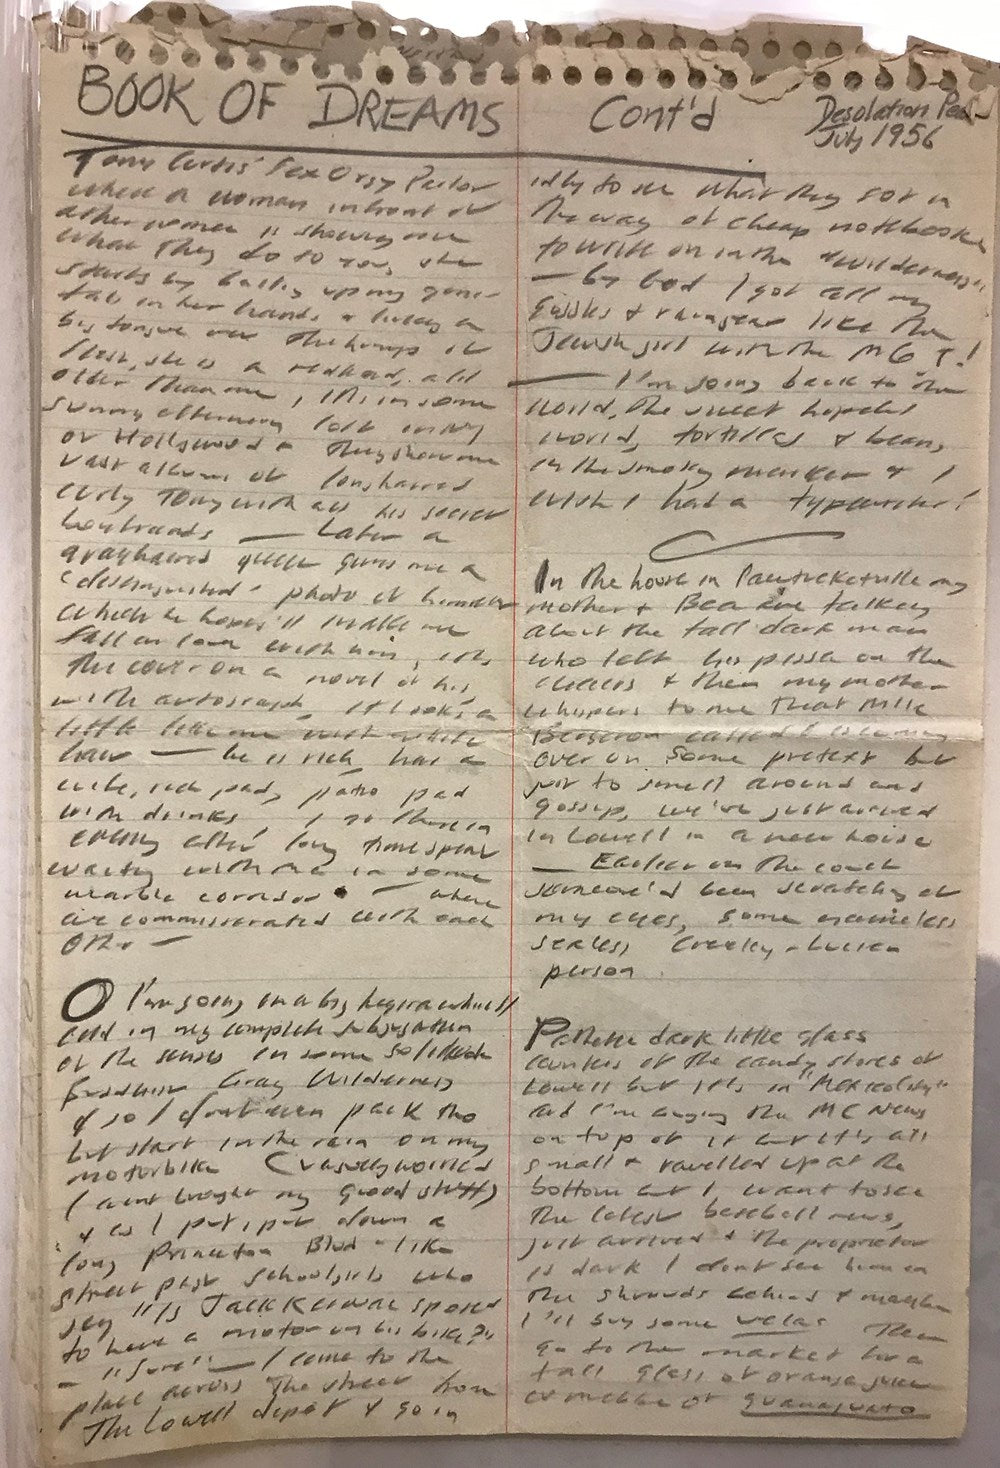 BOOK OF DREAMS
Cont'd
Desolation Peak
July 1956
Tony Curtis' Sex Orgy Parlor
where a woman in front of
other women is showing me
what they do to you, she
starts by balling up my geni-
tals in her hands &
big tongue over the lumps of
flesh, she is a redhead, a bit
older than me, it's in some
sunny afternoon
or Hollywood & they show me
vast albums of longhaired
curly Tony with all his secret
boyfriends — Later a
grayhaired queer gives me a
"distinguished" photo of himself
which he hopes'll make me
fall in love with him, it's
the cover on a novel of his
with autograph, it looks a
little like me with white
hair — he is rich, has a
wife, rich pad, patio pad
with drinks, I go there in
evening after long time spent
waiting with me in some
marble corridor — where
are commiserated with each
other —
O I'm going on a big hegira which'll
end in my complete subjugation
of the senses in some solitude
Gray Wilderness
& so I don't even pack tho
but start in the rain on my
motorbike (vaguely worried
I aint brought my good stuff)
& as I putput down a
long Princeton Blvd-like
street past schoolgirls who
say "Is Jack Kerouac sposed
to have a motor on his bike?"
— "Sure" — I come to the
place across the street from
the Lowell depot & go in
idly to see what they got in
the way of cheap notebooks
to write on in the "wilderness"
— by God I got all my
& raingear like the
Jewish girl with the MG !
— I'm going back to the
world, the sweet hopeless
world, tortillas & beans
in the smoky market & I
wish I had a typewriter!
In the house in Pawtucketville my
mother & Bea are talking
about the tall dark man
who left his pissa on the
& then my mother
whispers to me that Mrs
Bergeron
over on some pretext but
just to smell around and
gossip, we've just arrived
in Lowell in a new house
— Earlier on the couch
someone'd been scratching at
my eyes, some nameless
sexless Creeley-Lucien
person
Pathetic dark little glass
counter of the candy stores of
Lowell but it's in "Mexicality"
and I'm buying the MC News
on top of it but it's all
small & ravelled up at the
bottom but I want to see
the latest baseball news,
just arrived & the proprietor
is dark I dont see him in
the shrouds behind & maybe
I'll buy some velas Then
go to the market for a
tall glass of orange juice
in middle of Guanajuato